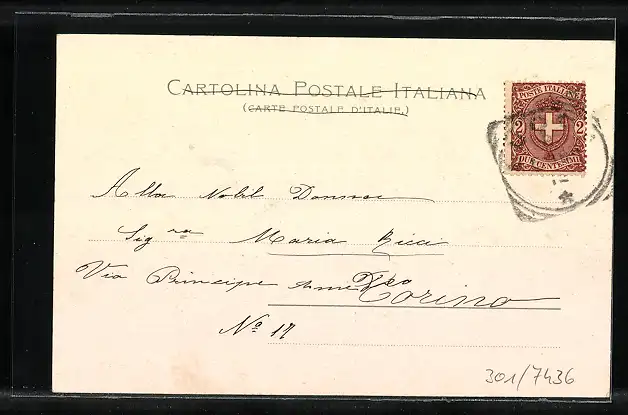 CARTOLINA POSTALE ITALIANA
(CARTE POSTALE D'ITALIE.)
POSTE ITALIANE
2 2
DUE CENTESIMI
Alla Nobil Donna
Sig.ra Maria Ricci
Via Principe Amedeo
Torino
Nº 17
301/7436